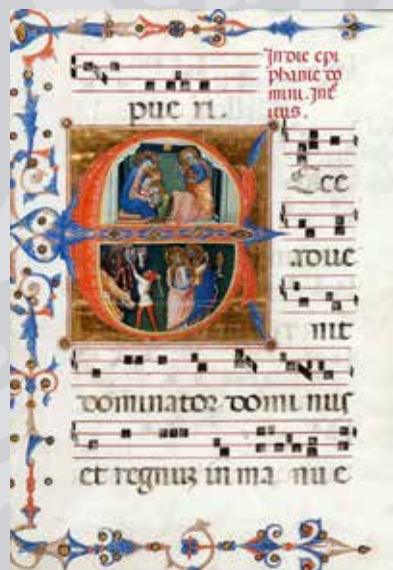 pue ri.
In die epi
phanie do
mini. Int
itus.
E
Cce
adue
nit
dominator domi nus
et regnuz in ma nu e